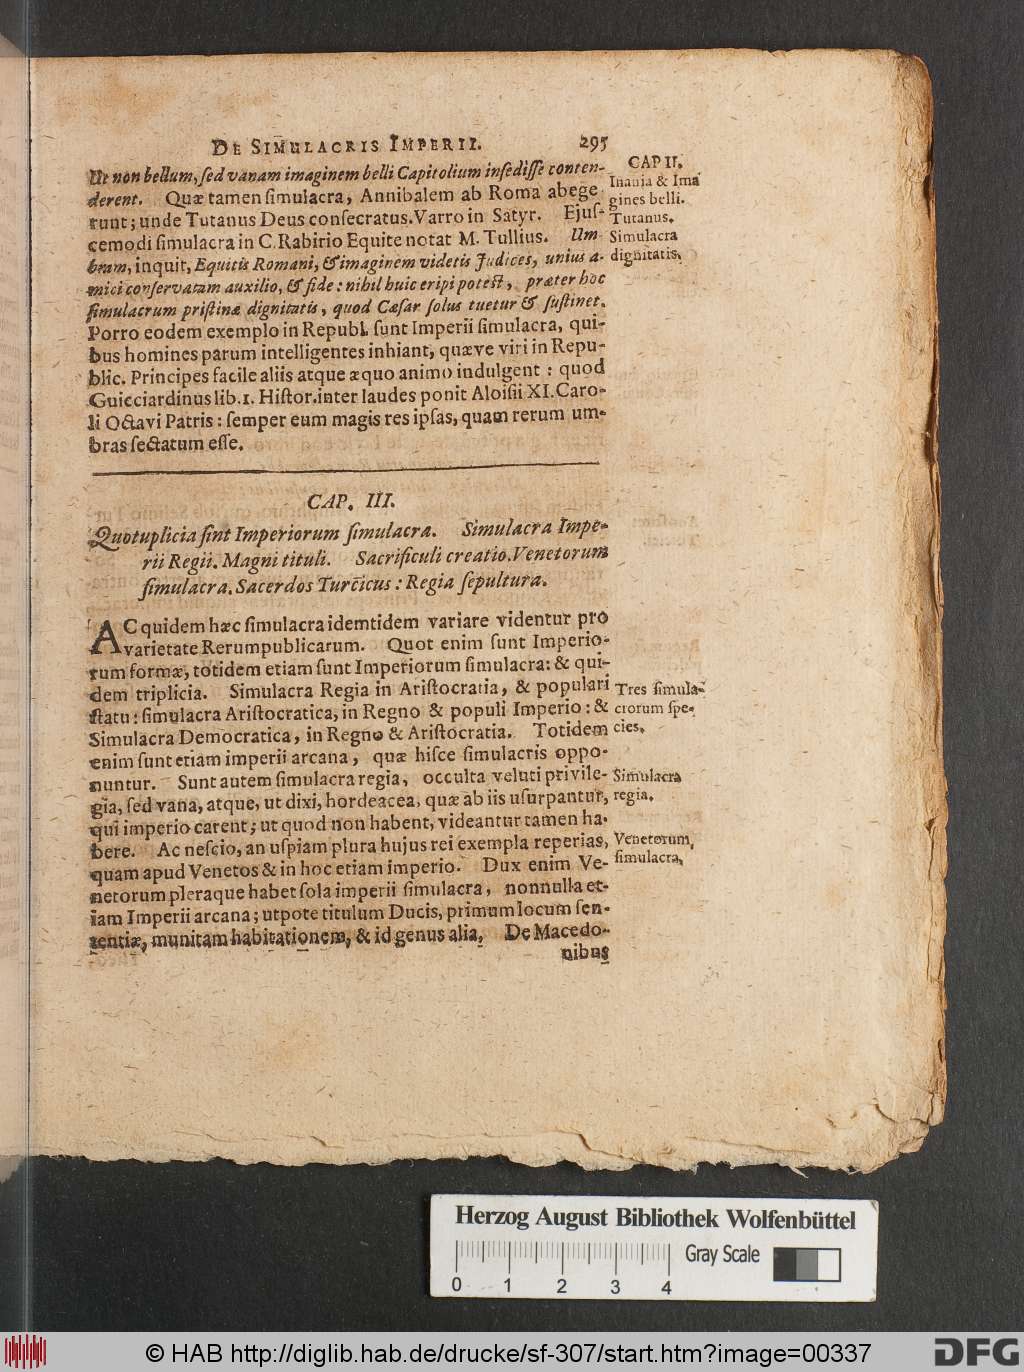 DE SIMULACRIS IMPERII. 295
CAP II.
Ut non bellum, sed vanam imaginem belli Capitolium insedisse conten-
derent. Quæ tamen simulacra, Annibalem ab Roma abege
runt; unde Tutanus Deus consecratus. Varro in Satyr. Ejus-
cemodi simulacra in C. Rabirio Equite notat M. Tullius. Um
bram, inquit, Equitis Romani, & imaginem videtis Judices, unius a-
mici conservatam auxilio, & fide: nihil huic eripi potest, præter hoc
simulacrum pristinæ dignitatis, quod Cæsar solus tuetur & sustinet.
Porro eodem exemplo in Republ. sunt Imperii simulacra, qui-
bus homines parum intelligentes inhiant, quæve viri in Repu-
blic. Principes facile aliis atque æquo animo indulgent: quod
Guicciardinus lib. 1. Histor. inter laudes ponit Aloisii XI. Caro-
li Octavi Patris: semper eum magis res ipsas, quam rerum um-
bras sectatum esse.
Inania & Ima
gines belli.
Tutanus.
Simulacra
dignitatis.
CAP. III.
Quotuplicia sint Imperiorum simulacra. Simulacra Impe-
rii Regii. Magni tituli. Sacrificuli creatio. Venetorum
simulacra. Sacerdos Turcicus: Regia sepultura.
AC quidem hæc simulacra idemtidem variare videntur pro
varietate Rerumpublicarum. Quot enim sunt Imperio-
rum formæ, totidem etiam sunt Imperiorum simulacra: & qui-
dem triplicia. Simulacra Regia in Aristocratia, & populari
statu: simulacra Aristocratica, in Regno & populi Imperio: &
Simulacra Democratica, in Regno & Aristocratia. Totidem
enim sunt etiam imperii arcana, quæ hisce simulacris oppo-
nuntur. Sunt autem simulacra regia, occulta veluti privile-
gia, sed vana, atque, ut dixi, hordeacea, quæ ab iis usurpantur,
qui imperio carent; ut quod non habent, videantur tamen ha-
bere. Ac nescio, an uspiam plura hujus rei exempla reperias,
quam apud Venetos & in hoc etiam imperio. Dux enim Ve-
netorum pleraque habet sola imperii simulacra, nonnulla et-
iam Imperii arcana; utpote titulum Ducis, primum locum sen-
tentiæ, munitam habitationem, & id genus alia. De Macedo-
nibus
Tres simula-
crorum spe-
cies.
Simulacra
regia.
Venetorum
simulacra.
Herzog August Bibliothek Wolfenbüttel
Gray Scale
0 1 2 3 4
© HAB http://diglib.hab.de/drucke/sf-307/start.htm?image=00337
DFG